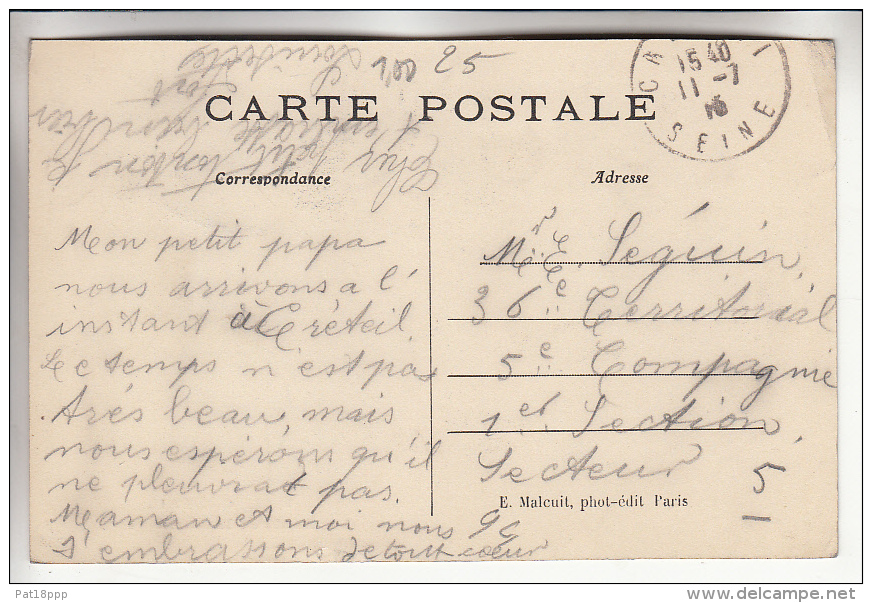 1,00 25
CARTE POSTALE
15 40
11 -7
16
SEINE
Correspondance
Adresse
Mon petit papa
nous arrivons a l'
instant à Créteil.
Le temps n'est pas
Trés beau, mais
nous espérons qu'il
ne pleuvrat pas.
Maman et moi nous
t'embrassons de tout cœur
Ton petit
t'embrasse bien
fort
Mr. E. Séguin,
36e Territorial
5e Compagnie
1er Section,
Secteur
5
E. Malcuit, phot-édit Paris
Pat18ppp
delcampe.net